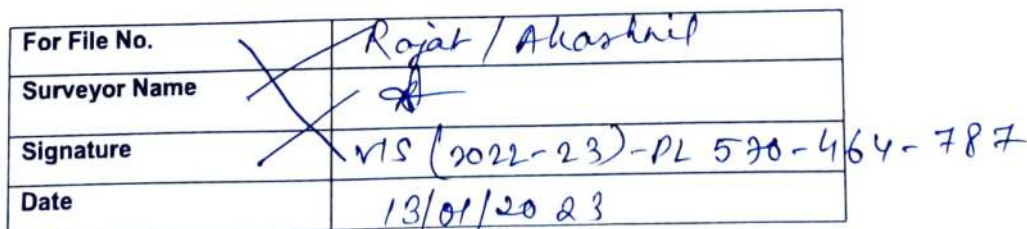 For File No. Rajat / Akashnil
Surveyor Name
Signature VIS (2022-23)-PL 570-464-787
Date 13/01/2023